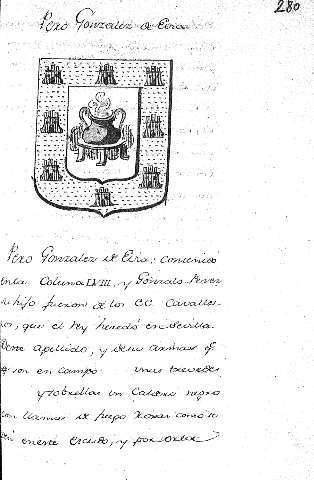 280
Pero Gonzalez de Eira
Pero Gonzalez de Eira, contenido
en la Coluna LVIII, y Gonzalo Perez
su hijo fueron de los CC. Cavalle-
ros, que el Rey heredó en Sevilla.
Deste apellido, y de sus armas q̃
son en campo unas trevedes
y sobrellas un Caldero negro
con llamas de fuego Roxas como se
en este escudo, y por orla